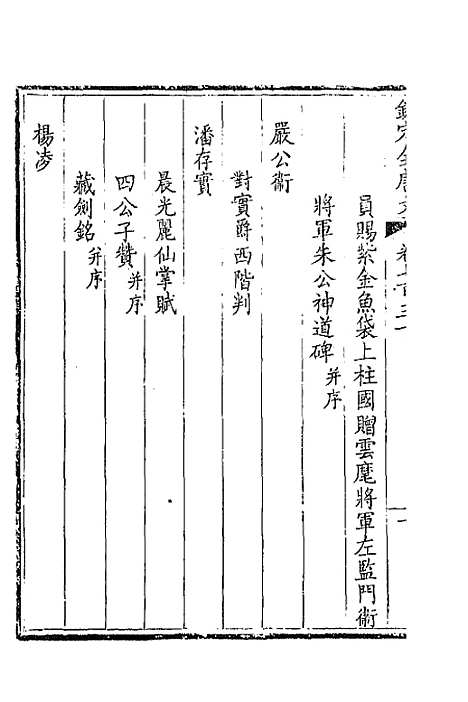 欽定全唐文 卷七百三十一 一
員賜紫金魚袋上柱國贈雲麾將軍左監門衛
將軍朱公神道碑并序
嚴公衡
對實爵西階判
潘存實
晨光麗仙掌賦
四公子贊并序
藏劍銘并序
楊凌